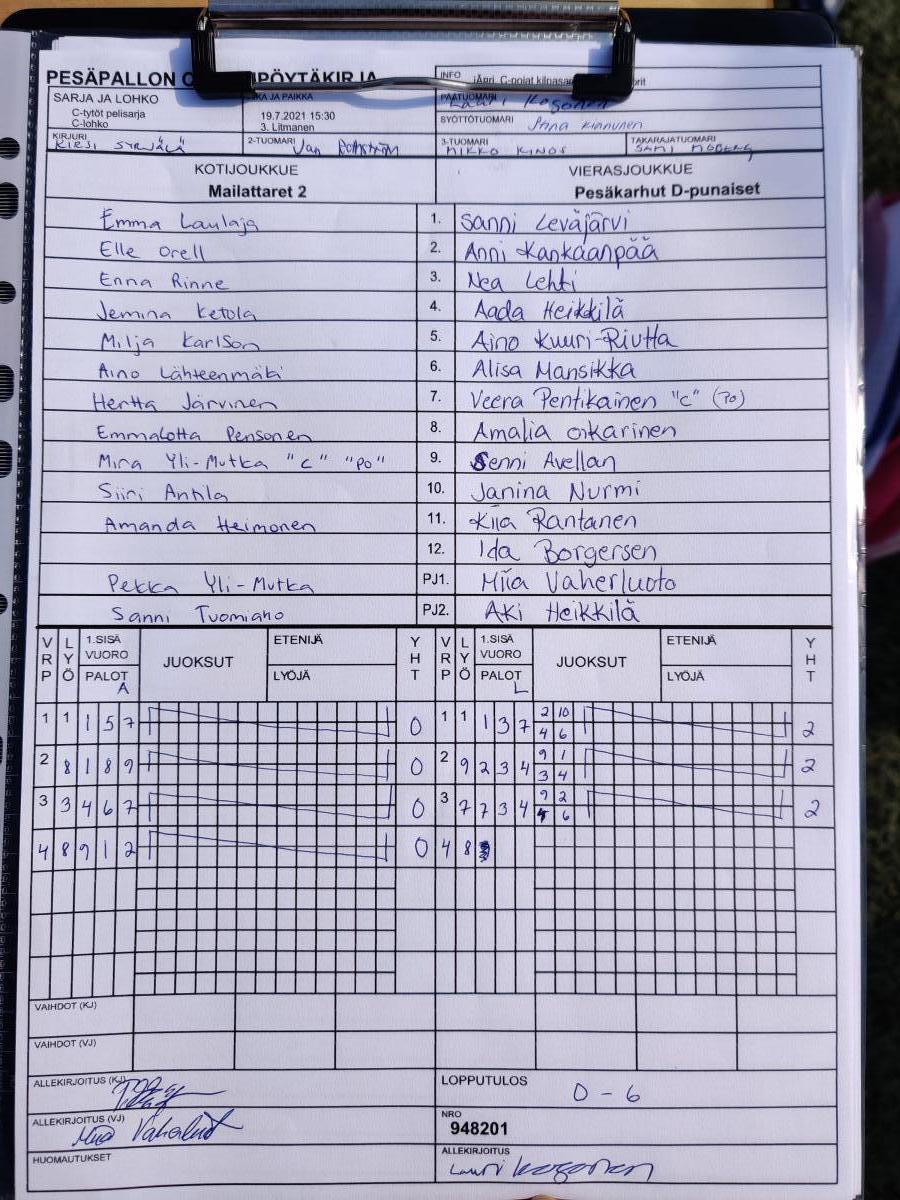 PESÄPALLON PÖYTÄKIRJA
INFO C-pojat
SARJA JA LOHKO
C-tytöt pelisarja
C-lohko
AIKA JA PAIKKA
19.7.2021 15:30
3. Litmanen
PÄÄTUOMARI Lauri
SYÖTTÖTUOMARI
KIRJURI
KIRSI SYRJÄLÄ
2-TUOMARI
3-TUOMARI
MIKKO KINOS
TAKARAJATUOMARI
SAMI MOBERG
KOTIJOUKKUE VIERASJOUKKUE
Mailattaret 2 Pesäkarhut D-punaiset
Emma Laulaja 1. Sanni Leväjärvi
Elle Orell 2. Anni Kankaanpää
Enna Rinne 3. Nea Lehti
Jemina Ketola 4. Aada Heikkilä
Milja Karlson 5. Aino Kuuri-Riutta
Aino Lähteenmäki 6. Alisa Mansikka
Hertta Järvinen 7. Veera Pentikäinen "C" (Po)
Emmalotta Pensonen 8. Amalia Oikarinen
Mira Yli-Mutka "C" "Po" 9. Senni Avellan
Siiri Anhla 10. Janina Nurmi
Amanda Heimonen 11. Kiia Rantanen
12. Ida Borgersen
Pekka Yli-Mutka PJ1. Miia Vaherluoto
Sanni Tuomiaho PJ2. Aki Heikkilä
VRP LYÖ 1.SISÄ VUORO PALOT A JUOKSUT ETENIJÄ LYÖJÄ YHT VRP LYÖ 1.SISÄ VUORO PALOT L JUOKSUT ETENIJÄ LYÖJÄ YHT
1 1 1 5 7 0 1 1 1 3 7 2 10 2
4 6
2 8 1 8 9 0 2 9 2 3 4 9 1 2
3 4
3 3 4 6 7 0 3 7 7 3 4 9 2 2
4 6
4 8 9 1 2 0 4 8
VAIHDOT (KJ)
VAIHDOT (VJ)
ALLEKIRJOITUS (KJ)
LOPPUTULOS
0 - 6
ALLEKIRJOITUS (VJ)
Miia Vaherluoto
NRO
948201
HUOMAUTUKSET
ALLEKIRJOITUS
Lauri